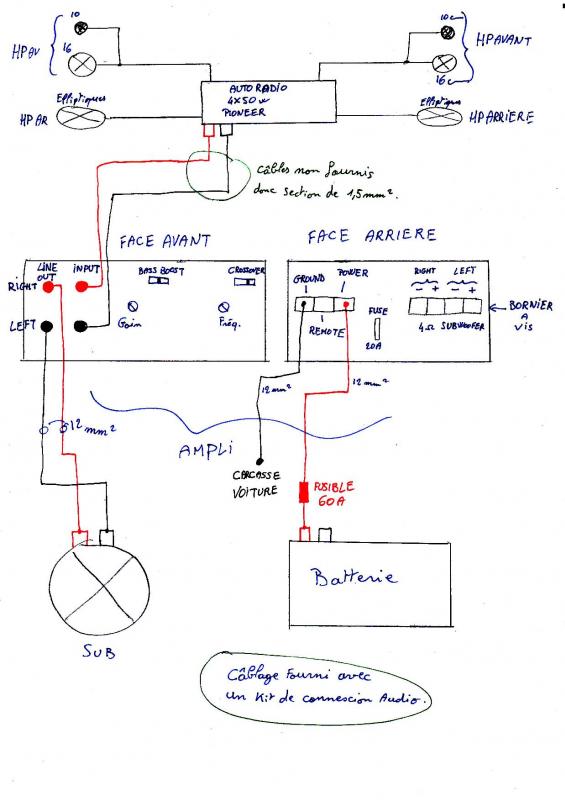 10
HP AV
16
10c
HP AVANT
16c
AUTO RADIO
4x50w
PIONEER
Elliptiques
HP AR
Elliptiques
HP ARRIERE
Câbles non fournis
donc section de 1,5mm².
FACE AVANT
FACE ARRIERE
LINE OUT
INPUT
BASS BOOST
CROSSOVER
RIGHT
LEFT
Gain
Fréq.
GROUND
POWER
REMOTE
FUSE
20A
RIGHT
LEFT
- +
- +
4Ω SUBWOOFER
BORNIER
A
VIS
12mm²
12mm²
12mm²
AMPLI
CARCASSE
VOITURE
FUSIBLE
60A
Batterie
SUB
Câblage Fourni avec
un Kit de connexcion Audio.